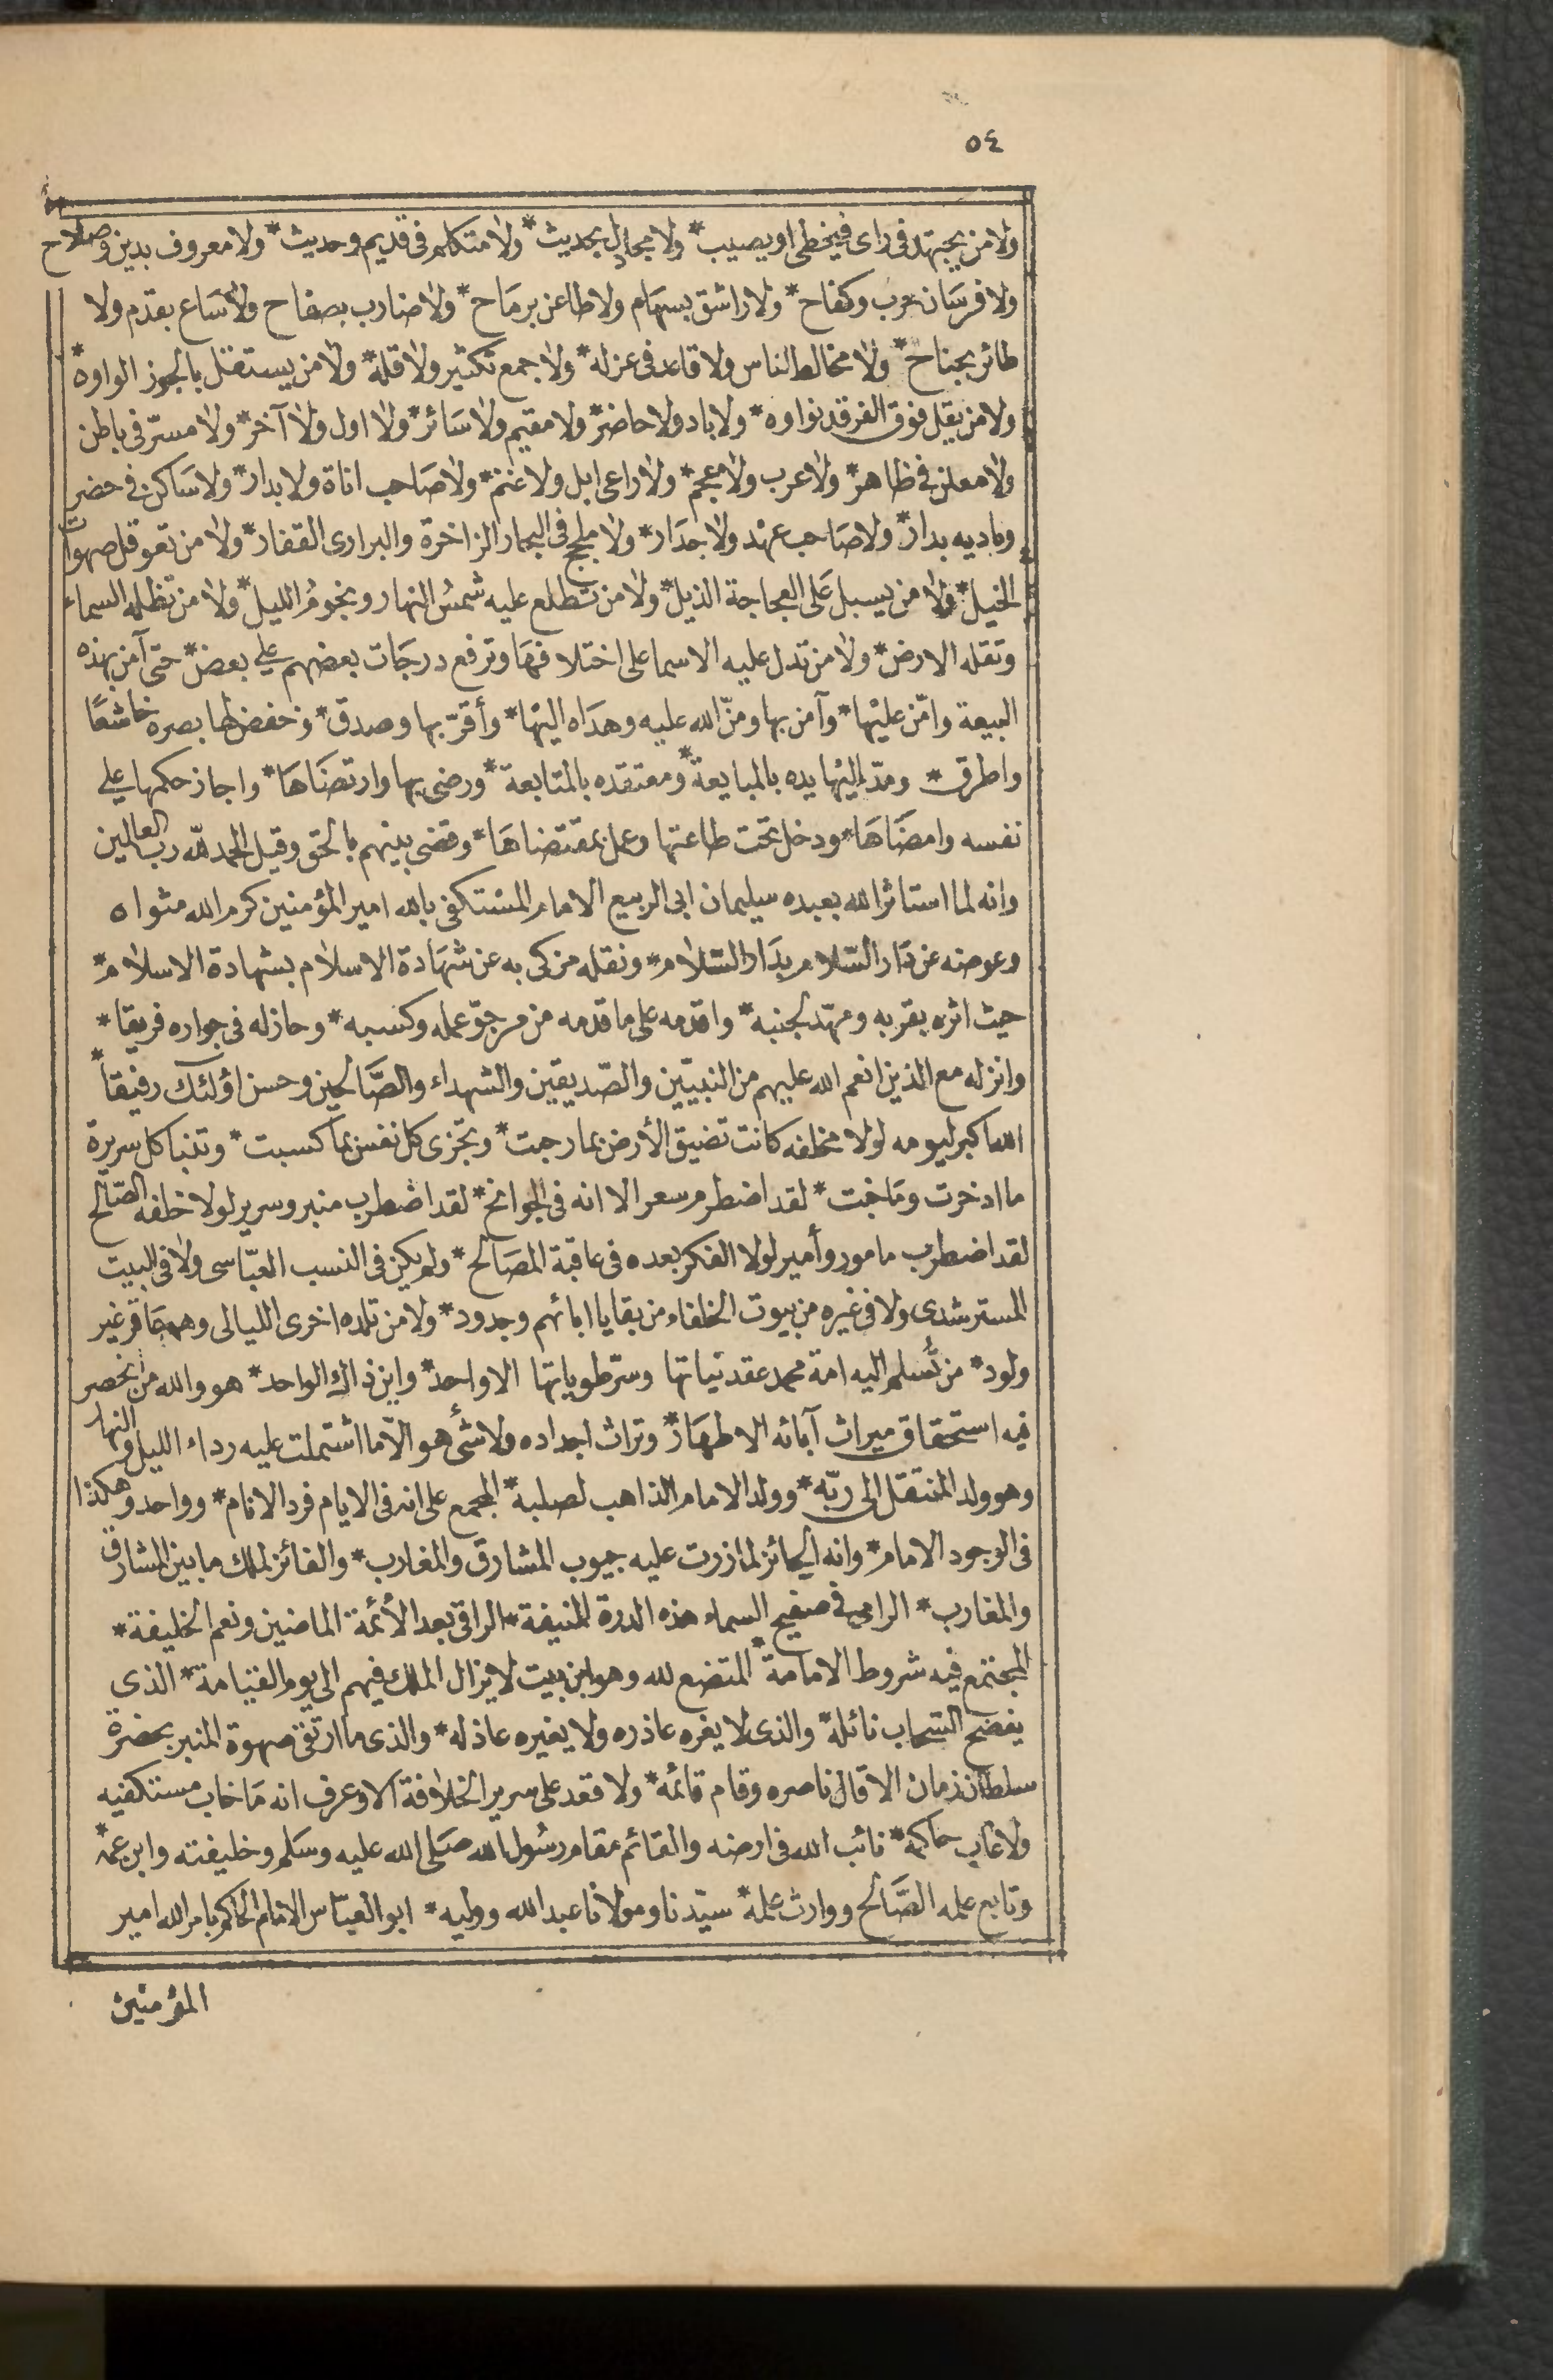 ٥٤
ولا من يجتهد فى راى فيخطى او يصيب * ولا مجادل بحديث * ولا متكلم فى قديم وحديث * ولا معروف بدين وصلاح
ولا فرسان حرب وكفاح * ولا راشق بسهام ولا طاعن برماح * ولا ضارب بصفاح ولا ساع بقدم ولا
طائر بجناح * ولا مخالط الناس ولا قاعد فى عزله * ولا جمع تكثير ولا قلة * ولا من يستقل بالجوز الواوه *
ولا من يقل فوق الفرقد نواوه * ولا باد ولا حاضر * ولا مقيم ولا سائر * ولا اول ولا آخر * ولا مسرّ فى باطن
ولا معلن فى ظاهر * ولا عرب ولا معجم * ولا راعى ابل ولا غنم * ولا صاحب اناة ولا بدار * ولا ساكن فى حضر
وباديه بدار * ولا صاحب عهد ولا جدار * ولا ملجج فى البحار الزاخرة والبرارى القفار * ولا من تعوقل صهوات
الخيل * ولا من يسبل على العجاجة الذيل * ولا من تطلع عليه شمسُ النهار ونجومُ الليل * ولا من تظله السماء
وتقله الارض * ولا من تدل عليه الاسما على اختلافها وترفع درجات بعضهم على بعض * حتى آمن بهذه
البيعة وامّن عليها * وآمن بها ومنّ الله عليه وهداه اليها * وأقرّ بها وصدق * وخفض لها بصره خاشعًا
واطرق * ومدّ إليها يده بالمبايعة * ومعتقده بالمتابعة * ورضى بها وارتضاها * واجاز حكمها على
نفسه وامضاها * ودخل تحت طاعتها وعمل بمقتضاها * وقضى بينهم بالحق وقيل الحمد لله رب العالمين
وانه لما استاثر الله بعبده سليمان ابى الربيع الامام المستكفى بالله امير المؤمنين كرم الله مثواه
وعوضه عن دار السّلام بدار السّلام * ونقله من كى به عن شهادة الاسلام بشهادة الاسلام *
حيث اثره بقربه ومهّد لجنبه * واقدمه على ما قدمه من مرجوّ عمله وكسبه * وحاز له فى جواره فريقا *
وانزله مع الذين انعم الله عليهم من النبيّين والصّديقين والشهداء والصّالحين وحسن اؤلئك رفيقاً *
الله اكبر ليومه لولا مخلفه كانت تضيق الأرض بما رحبت * وتجزى كل نفس بما كسبت * وتنبا كل سريرة
ما ادخرت وما خبت * لقد اضطرم سعر الا انه فى الجوانح * لقد اضطرب منبر وسرير لولا خلفه الصّالح
لقد اضطرب مامور وأمير لولا الفكر بعده فى عاقبة المصالح * ولم يكن فى النسب العبّاسى ولا فى البيت
المسترشدى ولا فى غيره من بيوت الخلفاء من بقايا ابائهم وجدود * ولا من تلده اخرى الليالى وهى عاقر غير
ولود * من تُسلم اليه امة محمد عقد نياتها وسرّ طوياتها الا واحد * واين ذاك الواحد * هو والله من انحصر
فيه استحقاق ميراث آبائه الاطهار * وتراث اجداده ولا شئ هو الّا ما اشتملت عليه رداء الليل والنهار
وهو ولد المنتقل الى ربّه * وولد الامام الذاهب لصلبه * المجمع على انه فى الايام فرد الانام * وواحد وهكذا
فى الوجود الامام * وانه الحائز لما زررت عليه جيوب المشارق والمغارب * والفائز لملك ما بين المشارق
والمغارب * الرامى فى صفيح السماء هذه الدرة المنيفة * الراقى بعد الأئمة الماضين ونعم الخليفة *
المجتمع فيه شروط الامامة * المتضع لله وهو ابن بيت لا يزال الملك فيهم الى يوم القيامة * الذى
يفضح السّحاب نائله * والذى لا يغره عاذره ولا يغيره عاذله * والذى ما ارتقى صهوة المنبر بحضرة
سلطان زمان الا قال ناصره وقام قائمه * ولا قعد على سرير الخلافة الا وعرف انه ما خاب مستكفيه
ولا غاب حاكمه * نائب الله فى ارضه والقائم مقام رسُول الله صلى الله عليه وسلم وخليفته وابن عمّه *
وتابع عمله الصّالح ووارث علمه * سيّدنا ومولانا عبد الله ووليه * ابو العبّاس الامام الحاكم بامر الله امير
المؤمنين